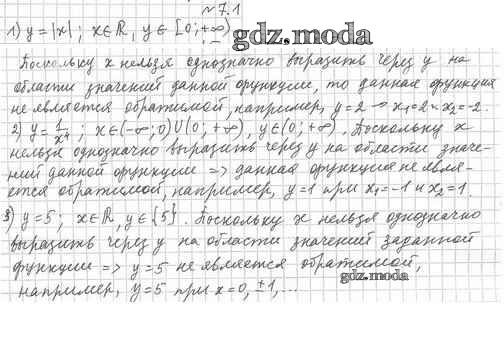 № 7.1
1) y = |x|; x∈ℝ, y∈[0; +∞)
gdz.moda
Поскольку x нельзя однозначно выразить через y на
области значений данной функции, то данная функция
не является обратимой, например, y = 2 → x₁ = 2 и x₂ = -2.
2) y = 1/x⁴; x∈(-∞; 0)∪(0; +∞), y∈(0; +∞). Поскольку x
нельзя однозначно выразить через y на области значе-
ний данной функции => данная функция не явля-
ется обратимой, например, y = 1 при x₁ = -1 и x₂ = 1.
3) y = 5; x∈ℝ, y∈{5}. Поскольку x нельзя однозначно
выразить через y на области значений заданной
функции => y = 5 не является обратимой,
gdz.moda
например, y = 5 при x = 0, ±1, ...